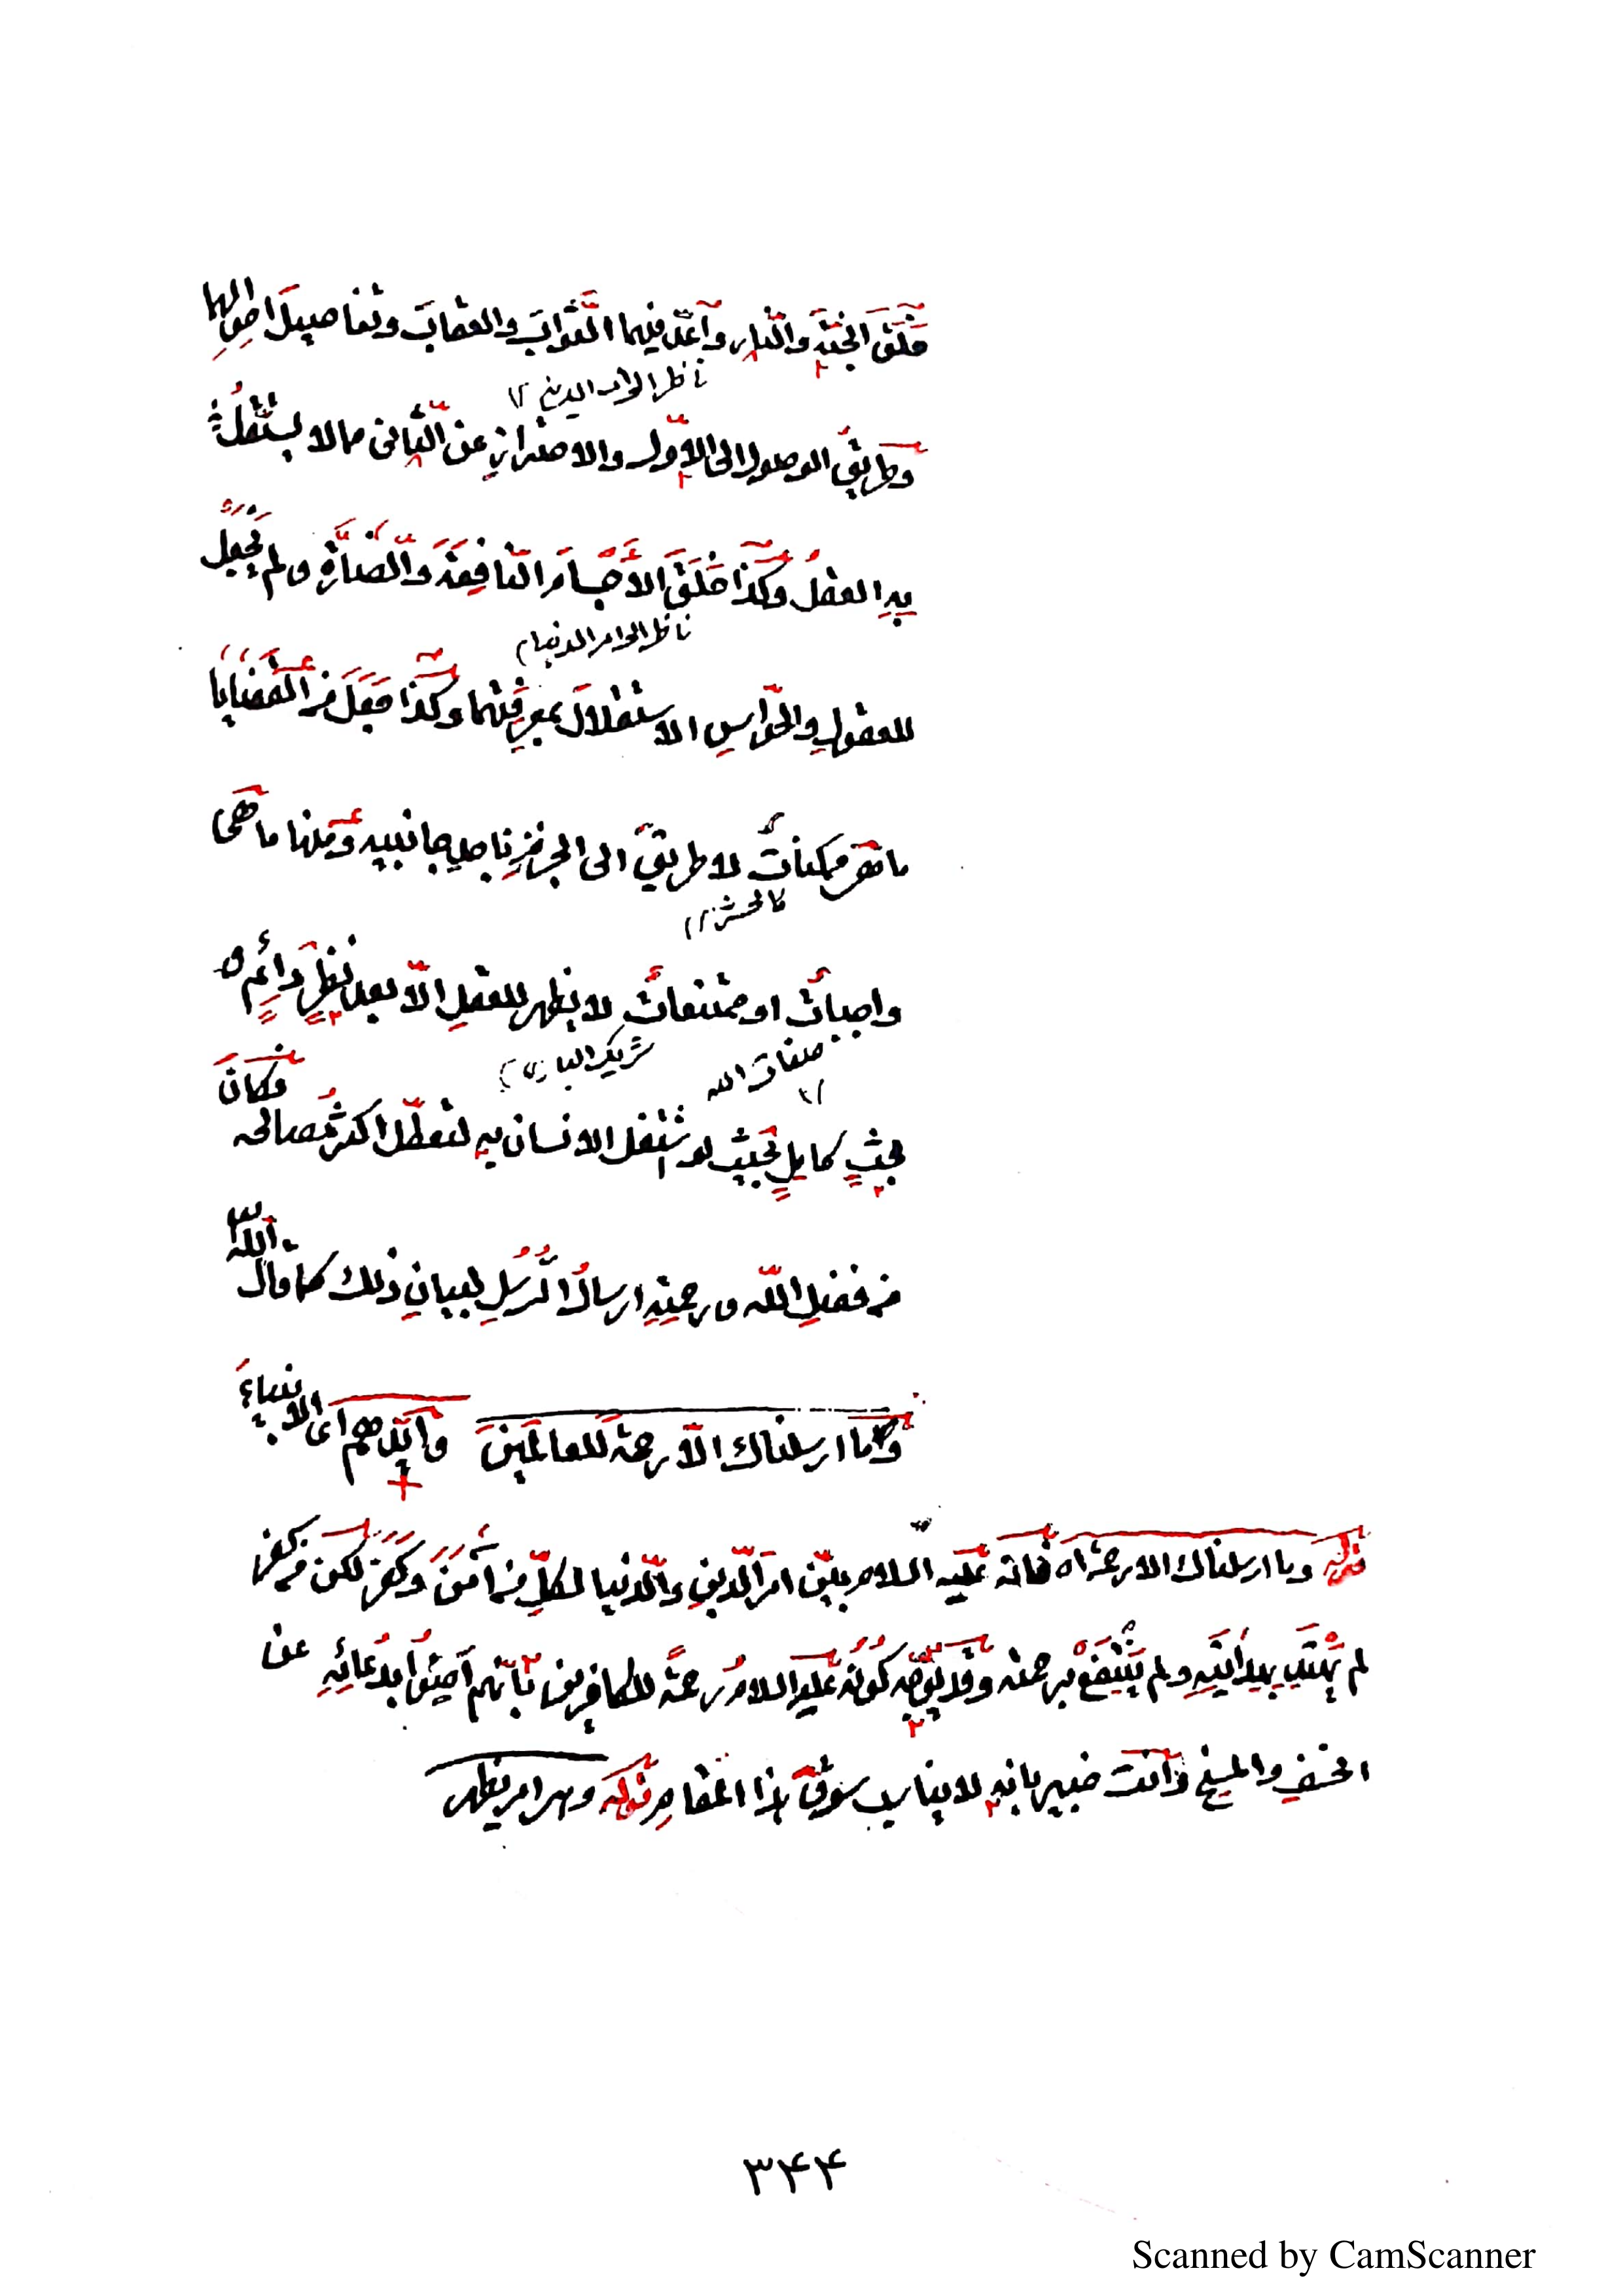 خَلَقَ الجنّةَ والنّارَ وأعدّ فيهما الثّوابَ والعقابَ وتفاصيلُ احوالِهما
ناظر الى امر الدين ١٢
وطريقُ الوصول الى الاوّل والاحترازِ عن الثّانى مما لا يستقلُّ
بهِ العقلُ وكَذا خَلَقَ الأجسامَ النّافِعَةَ والضّارّةَ ولم يَجْعَلْ
ناظر الى امر الدنيا ١٢
للعقولِ والحَوّاسِ الاستقلالَ بمعرِفَتِهما وكذا جَعَلَ من القَضايا
ما هى ممكناتٌ لا طريقَ الى الجزمِ باحد جانبيه ومنها ما هى
كالحشر ١٢
واجباتٌ او ممتنعاتٌ لا يظهر للعقلِ الّا بعد نظرٍ دائمٍ و
صفات الله ١٢
شريك البارى ١٢
بحثٍ كاملٍ بحيث لو اشتغل الانسان به لتعطّل اكثرُ مصالحه فكانَ
من فضلِ اللّه ورحمتِهِ ارسالُ الرُّسُلِ لبيانِ ذلك كما قال اللّهُ
وما ارسلناك الّا رحمة للعالمينَ وايّدهم اى الانبياءَ
قوله وما ارسلناك الا رحمة اه فانه عليه السلام بيّن امرَ الدّينِ والدّنيا لكلِّ من آمَنَ وكَفَرَ لكن من كفر
لم يَهْتَدِ بهِدايَتِهِ ولم يَنْتَفِعْ برحمته وقد يوجّه كونُهُ عليه السلامُ رحمةً للكافرين بأنّهم اَمِنُوا بدُعائِهِ عن
الخسفِ والمسخِ وانت خبير بانه لا يناسب سَوقَ هذا المقامِ قوله وهو امر يظهر
٣۴۴
Scanned by CamScanner